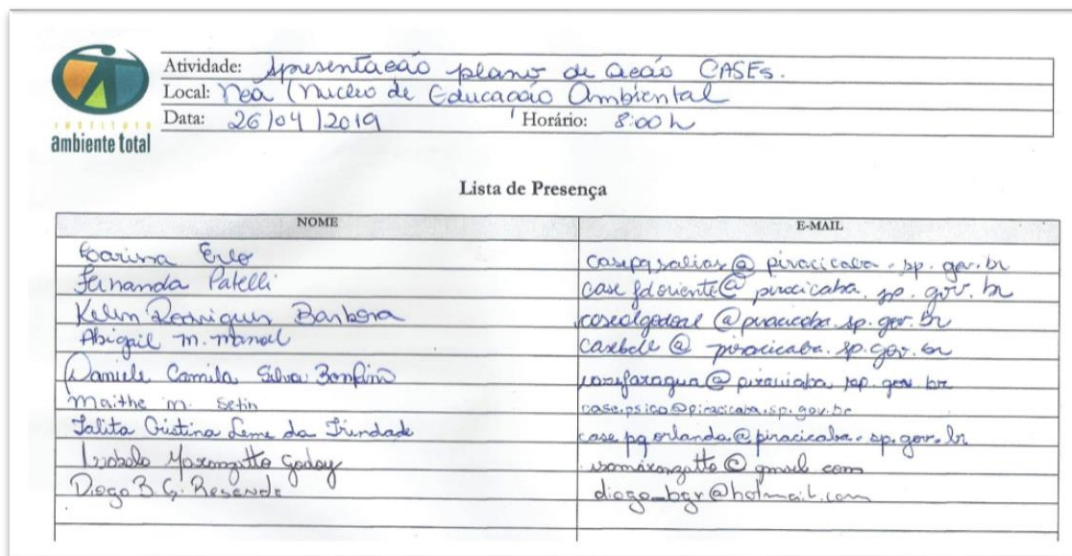 INSTITUTO
ambiente total
Atividade: Apresentação plano de ação CASEs.
Local: Nea (Nucleo de Educação Ambiental
Data: 26/04/2019 Horário: 8:00 h
Lista de Presença
NOME E-MAIL
Fernanda Patelli case jdoriente@piracicaba.sp.gov.br
Rodrigues Barbosa casealgodoal@piracicaba.sp.gov.br
Abigail M. Manoel @piracicaba.sp.gov.br
Daniele Camila Silva Bonfim @piracicaba.sp.gov.br
Maithe M. Setin case.psico@piracicaba.sp.gov.br
Talita Cristina Leme da Trindade case pq orlanda@piracicaba.sp.gov.br
Godoy @gmail.com
Diogo B. G. Resende diogo_bgr@hotmail.com